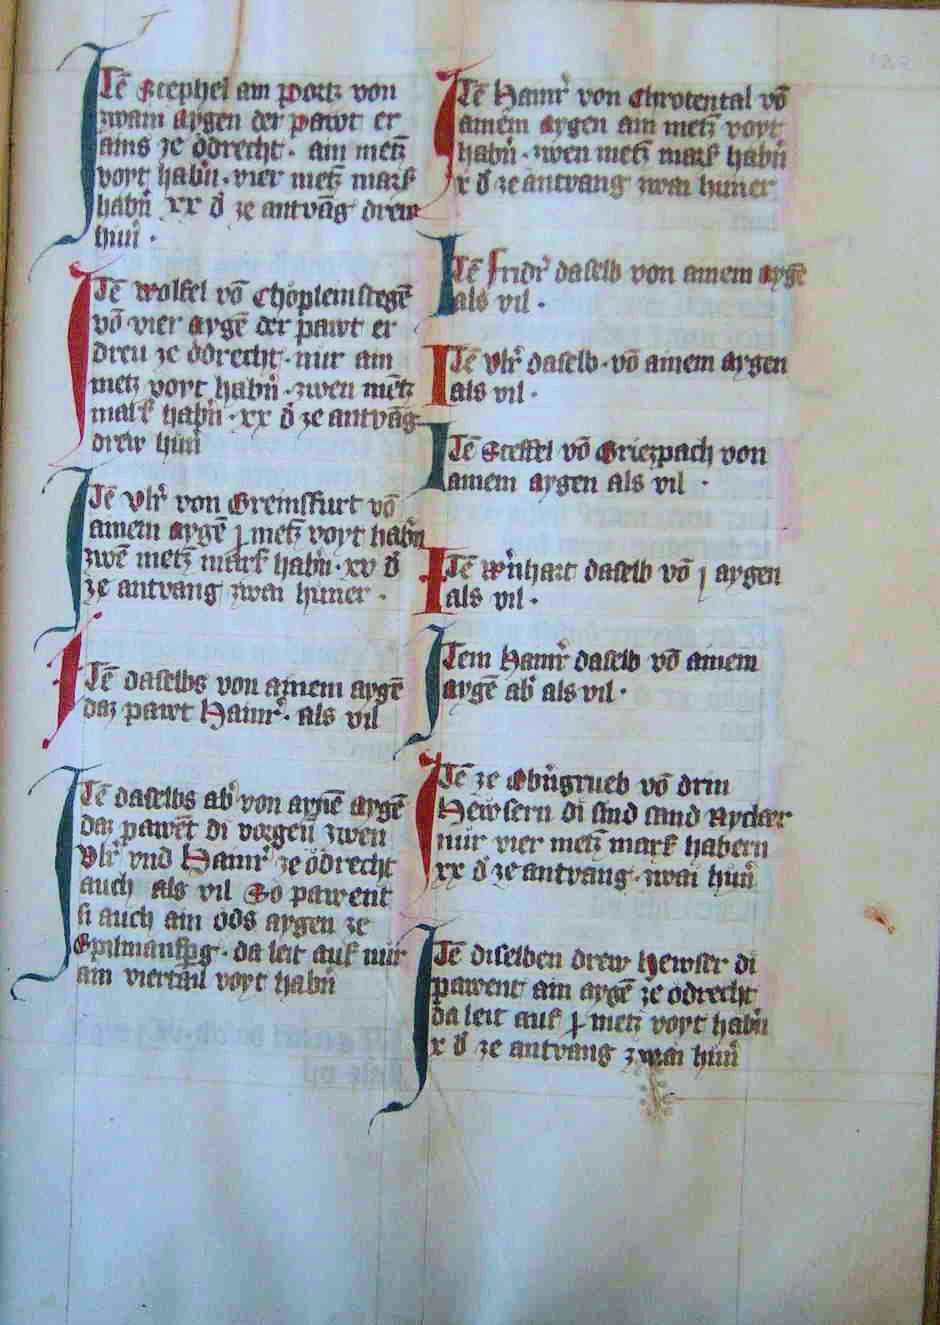 Itē Stephel am Portz von
zwain aygen der pawt er
ains ze ödrecht · ain metz̄
voyt habn̄ · vier metz̄ mark
habn̄ xx d̄ ze antvāg drew
hun̄ ·
Itē Wolfel vō Chöpleinstegē
vō vier aygē der pawt er
dreu ze ödrecht · nür ain
metz voyt habn̄ · zwen mētz
mark habn̄ · xx d̄ ze antvāg
drew hun̄
Itē Vlr̄ von Greinsfurt vō
ainem aygē metz̄ voyt habn̄
zwē metz̄ mark habn̄ · xv d̄
ze antvang zwai huner ·
Itē daselbs von ainem aygē
daz pawt Hainr̄ · als vil
Itē daselbs ab̄ von aynē aygē
daz pawēt di vorgen̄ zwen
Vlr̄ vnd Hainr̄ ze ödrecht
auch als vil So pawent
si auch ain öds aygen ze
da leit auf nür
ain viertail voyt habn̄
Itē Hainr̄ von Chrotental vō
ainem aygen ain metz̄ voyt
habn̄ · zwen metz̄ mark habn̄
x d̄ ze antvang zwai huner
Itē Fridr̄ daselb von ainem aygē
als vil ·
Itē Vlr̄ daselb · vō ainem aygen
als vil ·
Itē Steffel vō Griezpach von
ainem aygen als vil ·
Itē Wn̄hart daselb vō j aygen
als vil ·
Item Hainr̄ daselb vō ainem
aygē ab̄ als vil ·
Itē ze Obn̄grueb vō drin
Hewsern di sind sand
nür vier metz̄ mark habern
xx d̄ ze antvang · zwai hun̄
Itē diselben drew hewser di
pawent ain aygē ze ödrecht
da leit auf metz̄ voyt habn̄
x d̄ ze antvang zwai hun̄